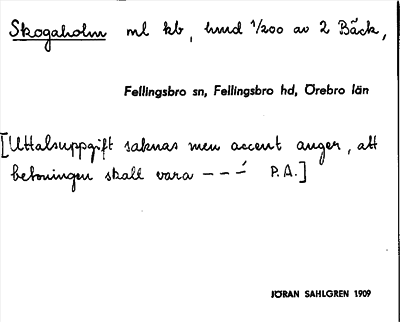 Skogaholm ml kb, hmd 1/200 av 2 Bäck,
Fellingsbro sn, Fellingsbro hd, Örebro län
[Uttalsuppgift saknas men accent anger, att
betoningen skall vara – – –́ P.A.]
JÖRAN SAHLGREN 1909